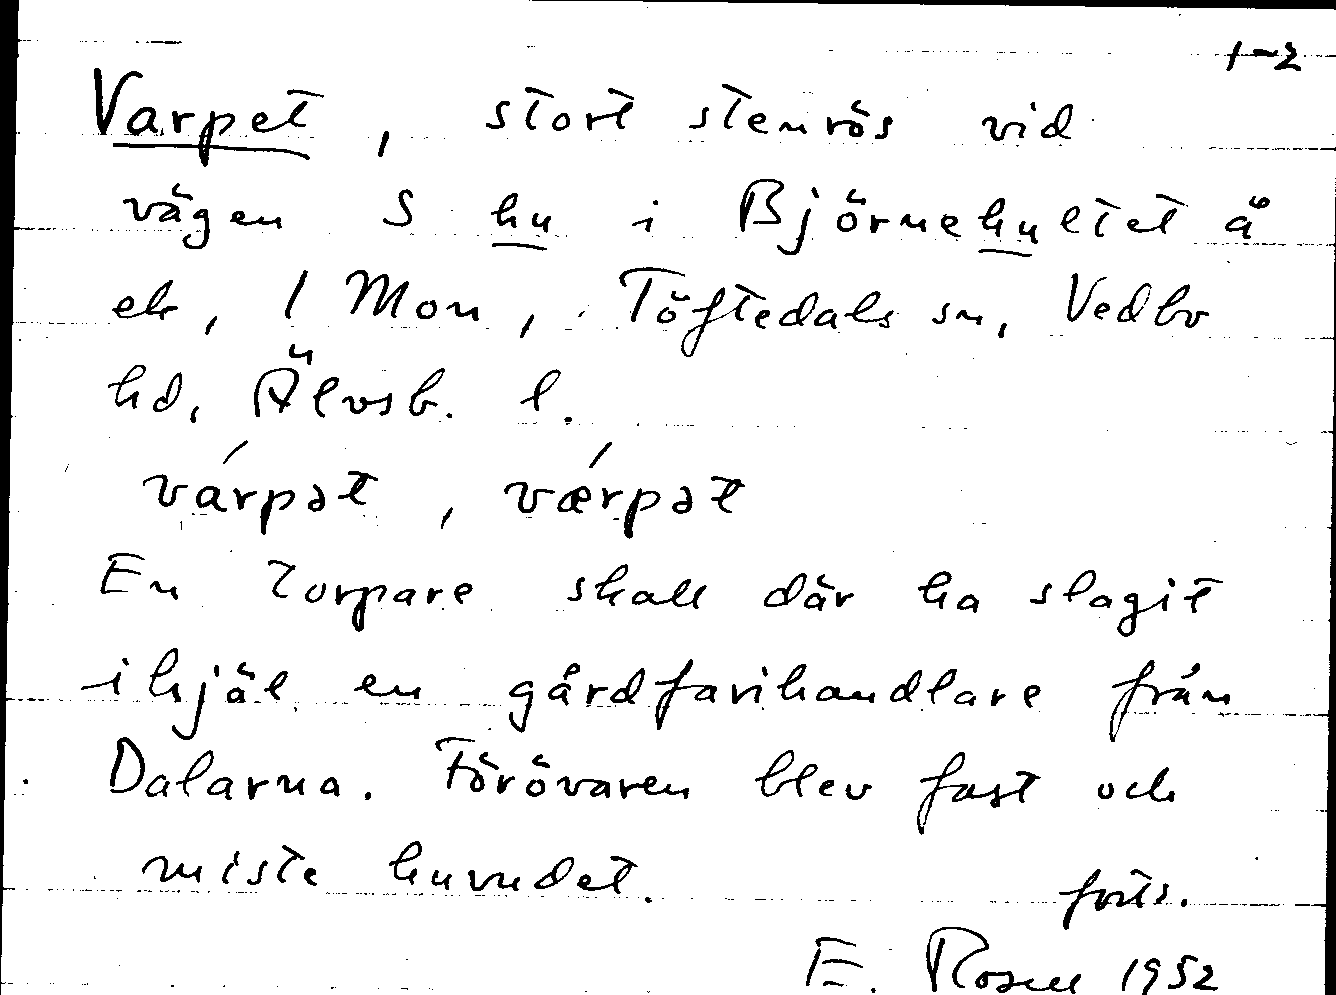 1-2
Varpet, stort stenrös vid
vägen S hu i Björnehultet å
ek, 1 Mon, Töftedals sn, Vedbo
hd, Älvsb. l.
várpət, vǽrpət
En torpare skall där ha slagit
ihjäl en gårdfarihandlare från
Dalarna. Förövaren blev fast och
miste huvudet.
forts.
E. Rosell 1952